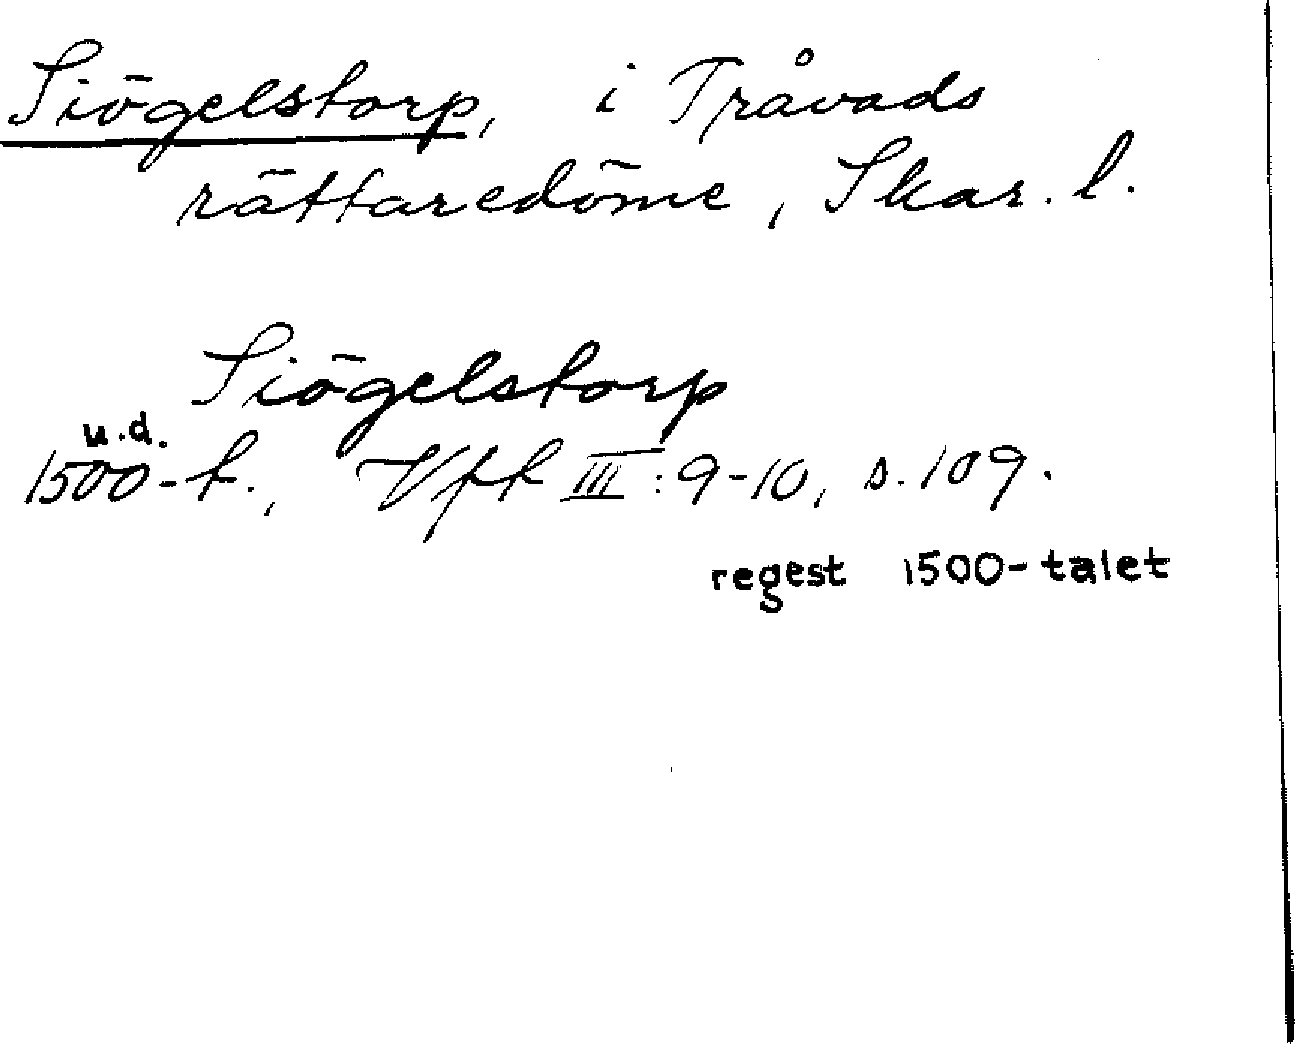 Siögelstorp, i Tråvads
rättaredöme, Skar. l.
Siögelstorp
u.d.
1500-t., Vft III: 9-10, s. 109.
regest 1500-talet